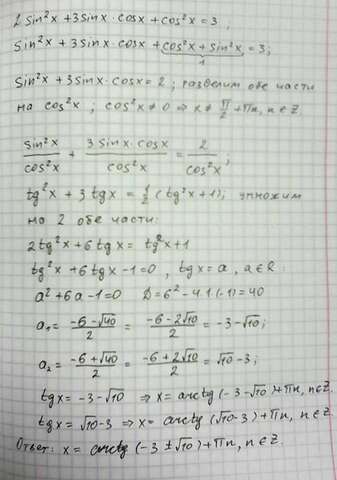 2 sin²x + 3 sinx · cosx + cos²x = 3 ;
sin²x + 3 sinx · cosx + cos²x + sin²x = 3 ;
1
sin²x + 3 sinx · cosx = 2 ; разделим обе части
на cos²x ; cos²x ≠ 0 ⇒ x ≠ π/2 + πn, n ∈ Z.
sin²x/cos²x + 3 sinx · cosx/cos²x = 2/cos²x ;
tg²x + 3 tgx = 1/2 (tg²x + 1) ; умножим
на 2 обе части:
2tg²x + 6tgx = tg²x + 1
tg²x + 6tgx - 1 = 0 , tgx = a , a ∈ R :
a² + 6a - 1 = 0 D = 6² - 4·1·(-1) = 40
a₁ = (-6 - √40)/2 = (-6 - 2√10)/2 = -3 - √10 ;
a₂ = (-6 + √40)/2 = (-6 + 2√10)/2 = √10 - 3 ;
tgx = -3 - √10 ⇒ x = arctg (-3 - √10) + πn, n ∈ Z.
tgx = √10 - 3 ⇒ x = arctg (√10 - 3) + πn, n ∈ Z.
Ответ: x = arctg (-3 ± √10) + πn, n ∈ Z.